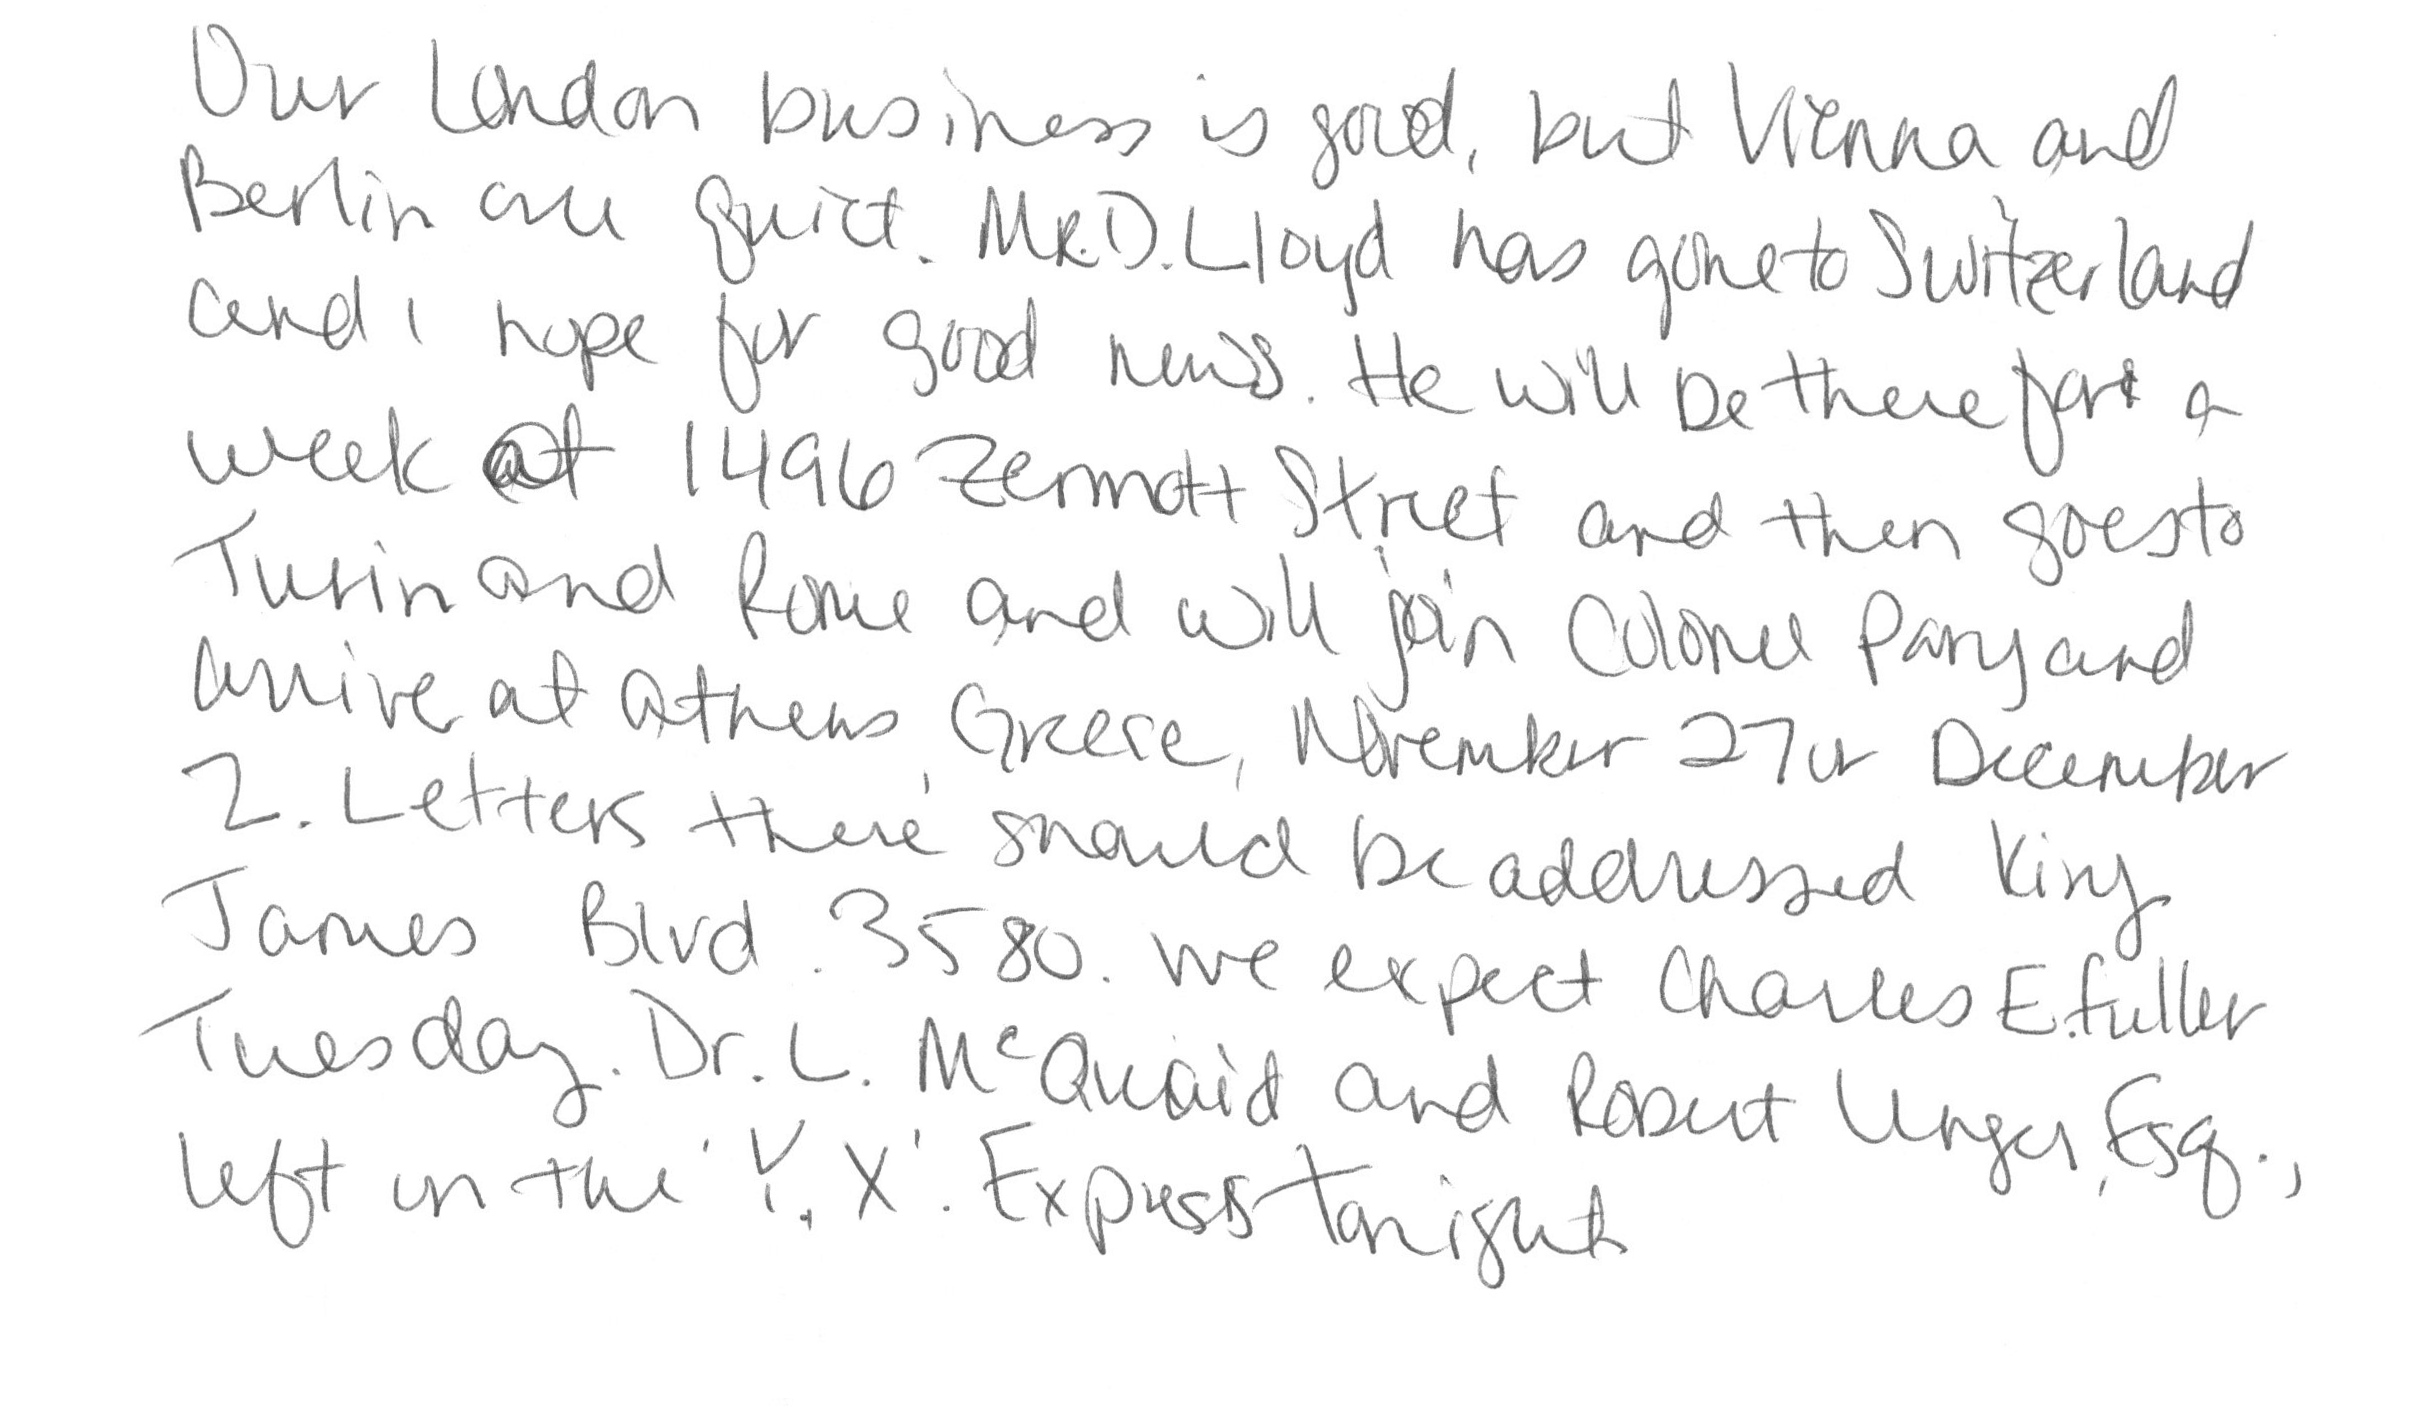 Our London business is good, but Vienna and
Berlin are quiet. Mr. D. Lloyd has gone to Switzerland
and I hope for good news. He will be there for a
week at 1496 Zermott Street and then goes to
Turin and Rome and will join Colonel Parry and
arrive at Athens, Greece, November 27 or December
2. Letters there should be addressed King
James Blvd. 3580. We expect Charles E. Fuller
Tuesday. Dr. L. McQuaid and Robert Unger, Esq.,
left on the 'Y. X'. Express tonight